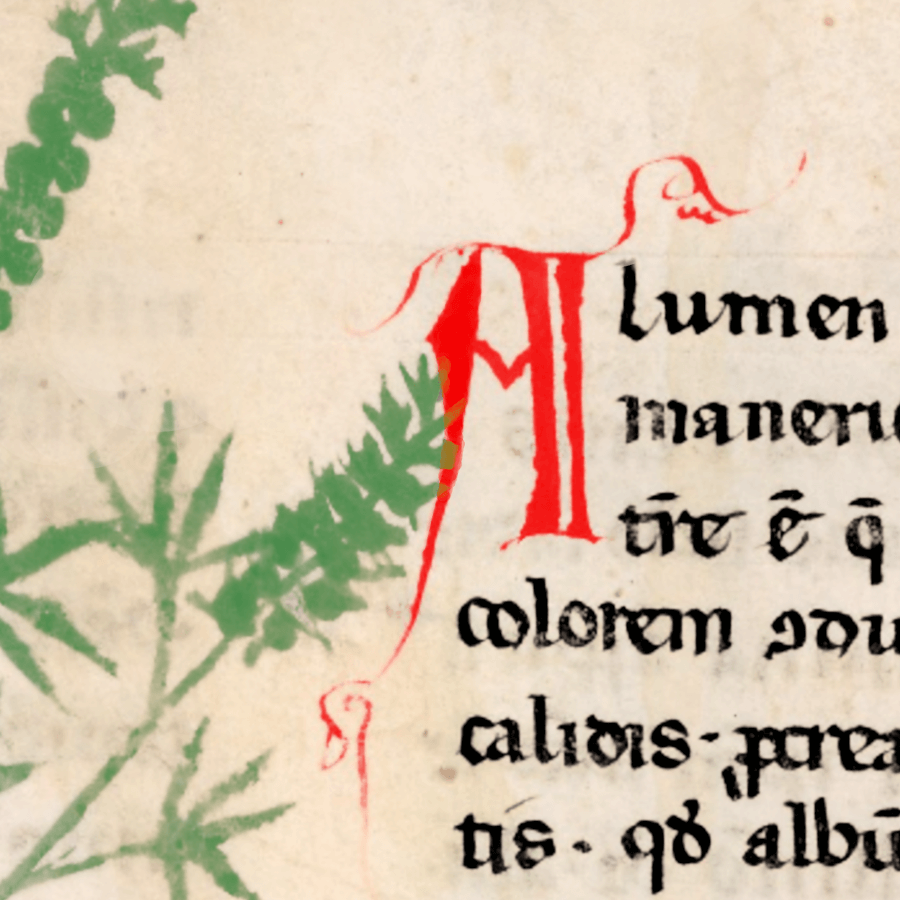 Alumen
maneri
tr̄e ē q̄
colorem ꝯdu
calidis· ꝓcrea
tis · qđ albū